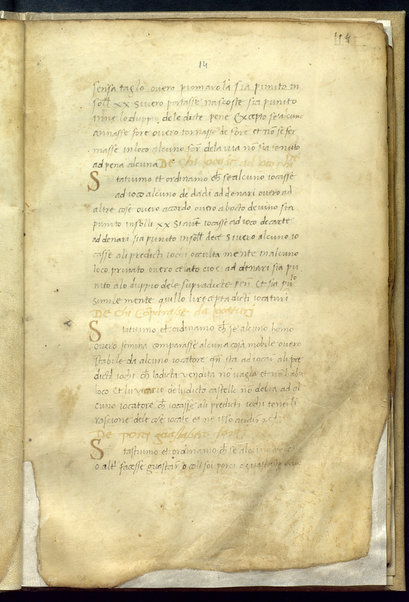 114
14
sensa taglo overo piomarola sia punito in
soll xx Sivero portasse nascoste sia punito
inne lo duppio de le dicte pene Excepto se alcuno
annasse fore overo tornasse de fore et nō se fer
masse in loco alcuno for dela via nō sia tenuto
ad pena alcuna De chi iocasse ad
Statuimo et ordinamo ch se alcuno iocasse
ad ioco alcuno de dadi ad denari overo ad
altre cose overo accordo overo a bocto de vino sia
punito in solli xx Si aut iocasse ad ioco de carte
ad denari sia punito in soll dece Sivero alcuno io
casse ali predicti iochi occulta mente in alcuno
loco privato overo celato cioe ad denari sia pu
nito alo duppio dele supradicte pen Et sia pu
simile mente quillo lire apta dicti iocaturi
De chi cōparasse da iocatori
Statuimo et ordinamo ch se alcuno homo
overo femina comparasse alcuna cosa mobile overo
stabile da alcuno iocatore sta ad iocar ali pre
dicti iochi ch la dicta vendita no vagla et nō habia
loco Et lu vicario de lu dicto castello nō debia ad al
cuno iocatore ch iocasse ali predicti iochi tener li
rascione dele cose iocate
De porci guastasser
Statuimo et ordinamo ch se alcuno
o alt facesse guastar o coll soi porci o